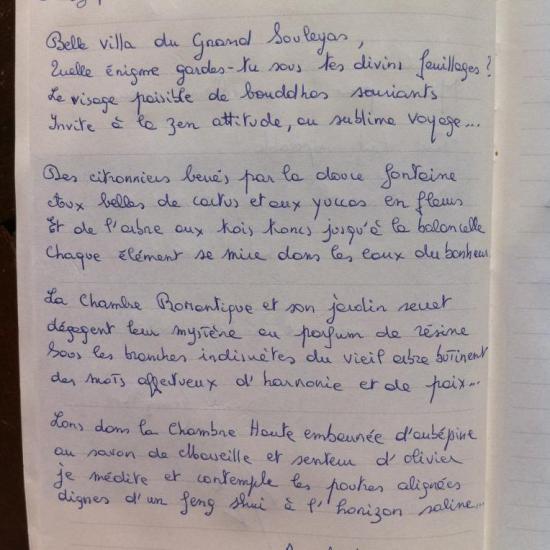 Belle villa du Grand Souleyas,
Quelle énigme gardes-tu sous tes divins feuillages ?
Le visage paisible de bouddhas souriants
Invite à la zen attitude, au sublime voyage...
Des citronniers bercés par la douce fontaine
Aux belles de cactus et aux yuccas en fleurs
Et de l'arbre aux trois troncs jusqu'à la balancelle
Chaque élément se mire dans les eaux du bonheur
La Chambre Romantique et son jardin secret
dégagent leur mystère au parfum de résine
Sous les branches indiscrètes du vieil arbre butinent
des mots affectueux d'harmonie et de paix...
Lors dans la Chambre Haute embaumée d'aubépine
au savon de Marseille et senteur d'olivier
je médite et contemple les poutres alignées
dignes d'un feng shui à l'horizon saline...